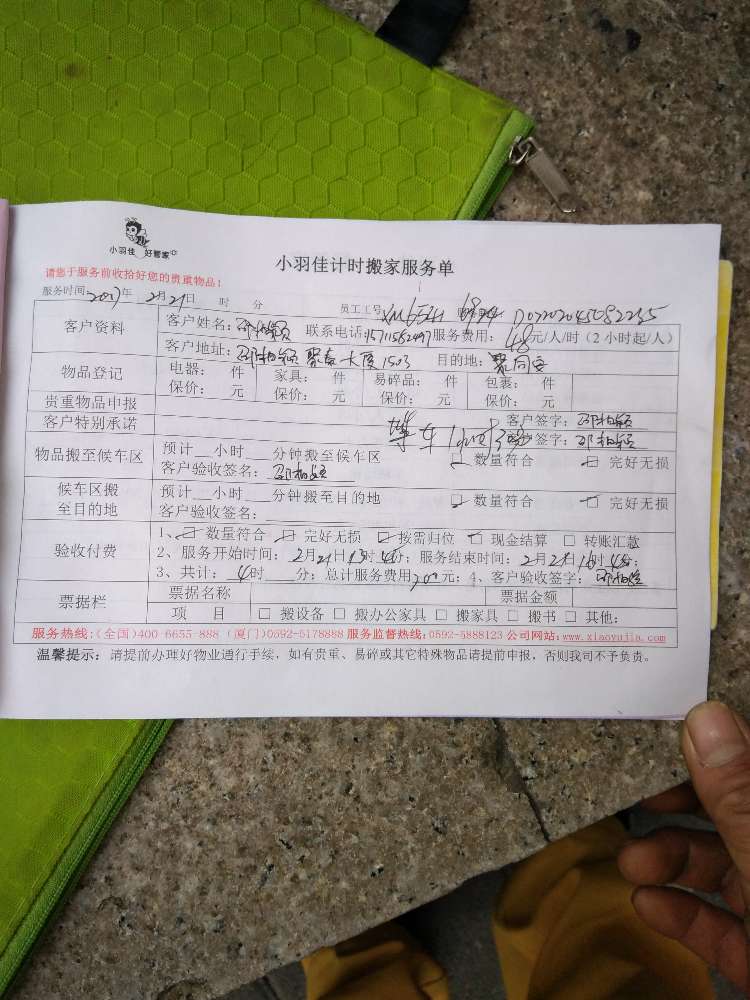 小羽佳 好管家
小羽佳计时搬家服务单
请您于服务前收拾好您的贵重物品!
服务时间: 年 2月21日 时 分 员工工号 D0220204508
客户资料 客户姓名: 联系电话: 服务费用: 48元/人/时(2小时起/人)
客户地址: 大厦1503 目的地: 同安
物品登记 电器: 件 家具: 件 易碎品: 件 包裹: 件
保价: 元 保价: 元 保价: 元 保价: 元
贵重物品申报 客户签字:
客户特别承诺 单车1小时 签字:
物品搬至候车区 预计__小时__分钟搬至候车区 □ 数量符合 □ 完好无损
客户验收签名:
候车区搬至目的地 预计__小时__分钟搬至目的地 □ 数量符合 □ 完好无损
客户验收签名:
验收付费 1、□ 数量符合 □ 完好无损 □ 按需归位 □ 现金结算 □ 转账汇款
2、服务开始时间: 2月21日 时 分; 服务结束时间: 2月21日 时 分;
3、共计: 4时____分; 总计服务费用 元; 4、客户验收签字:
票据栏 票据名称 票据金额
项 目 □ 搬设备 □ 搬办公家具 □ 搬家具 □ 搬书 □ 其他:
服务热线:(全国)400-6655-888 (厦门)0592-5178888 服务监督热线:0592-5888123 公司网站:www.xiaoyujia.com
温馨提示: 请提前办理好物业通行手续, 如有贵重、易碎或其它特殊物品请提前申报, 否则我司不予负责。